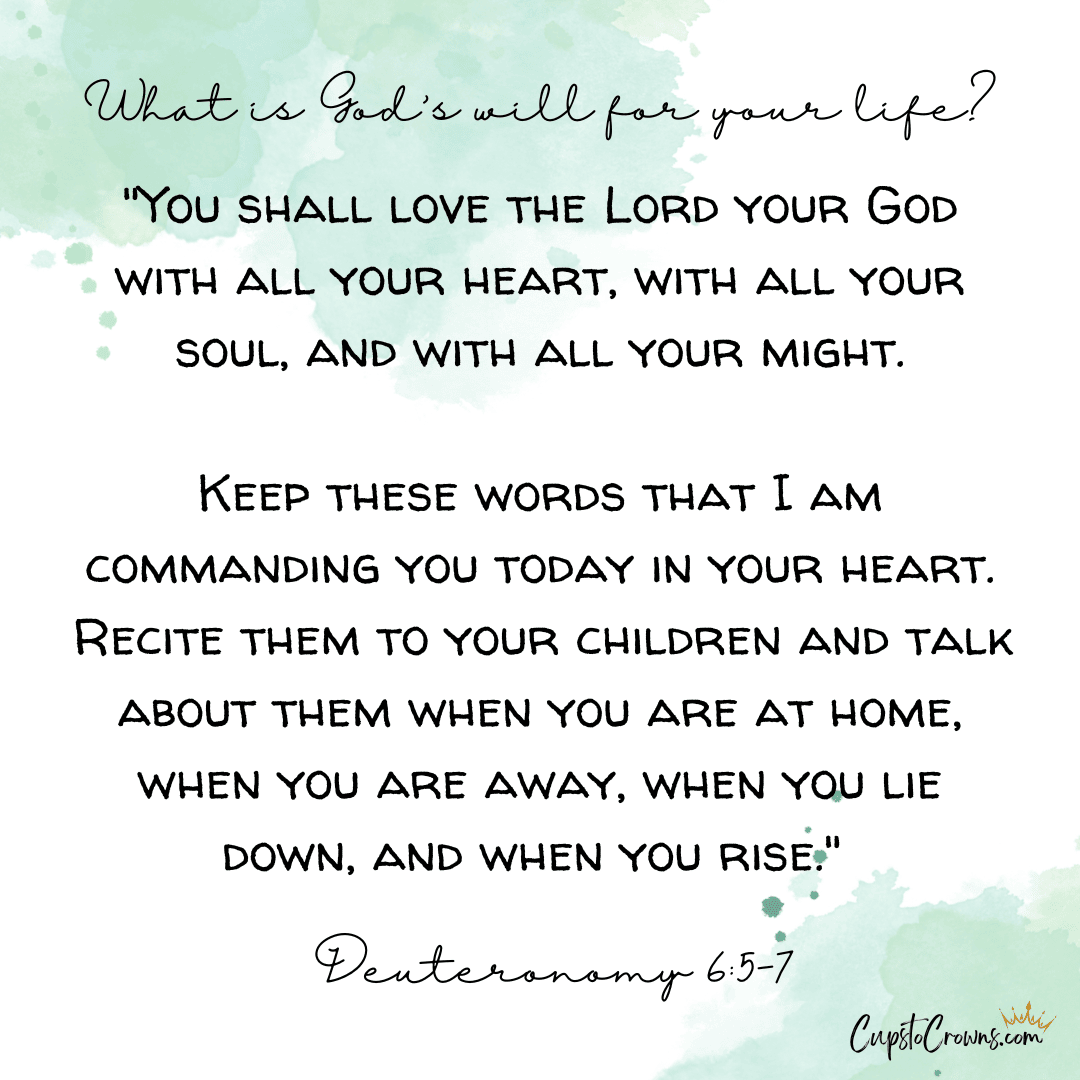 What is God's will for your life?
"You shall love the Lord your God
with all your heart, with all your
soul, and with all your might.
Keep these words that I am
commanding you today in your heart.
Recite them to your children and talk
about them when you are at home,
when you are away, when you lie
down, and when you rise."
Deuteronomy 6:5-7
CupstoCrowns.com